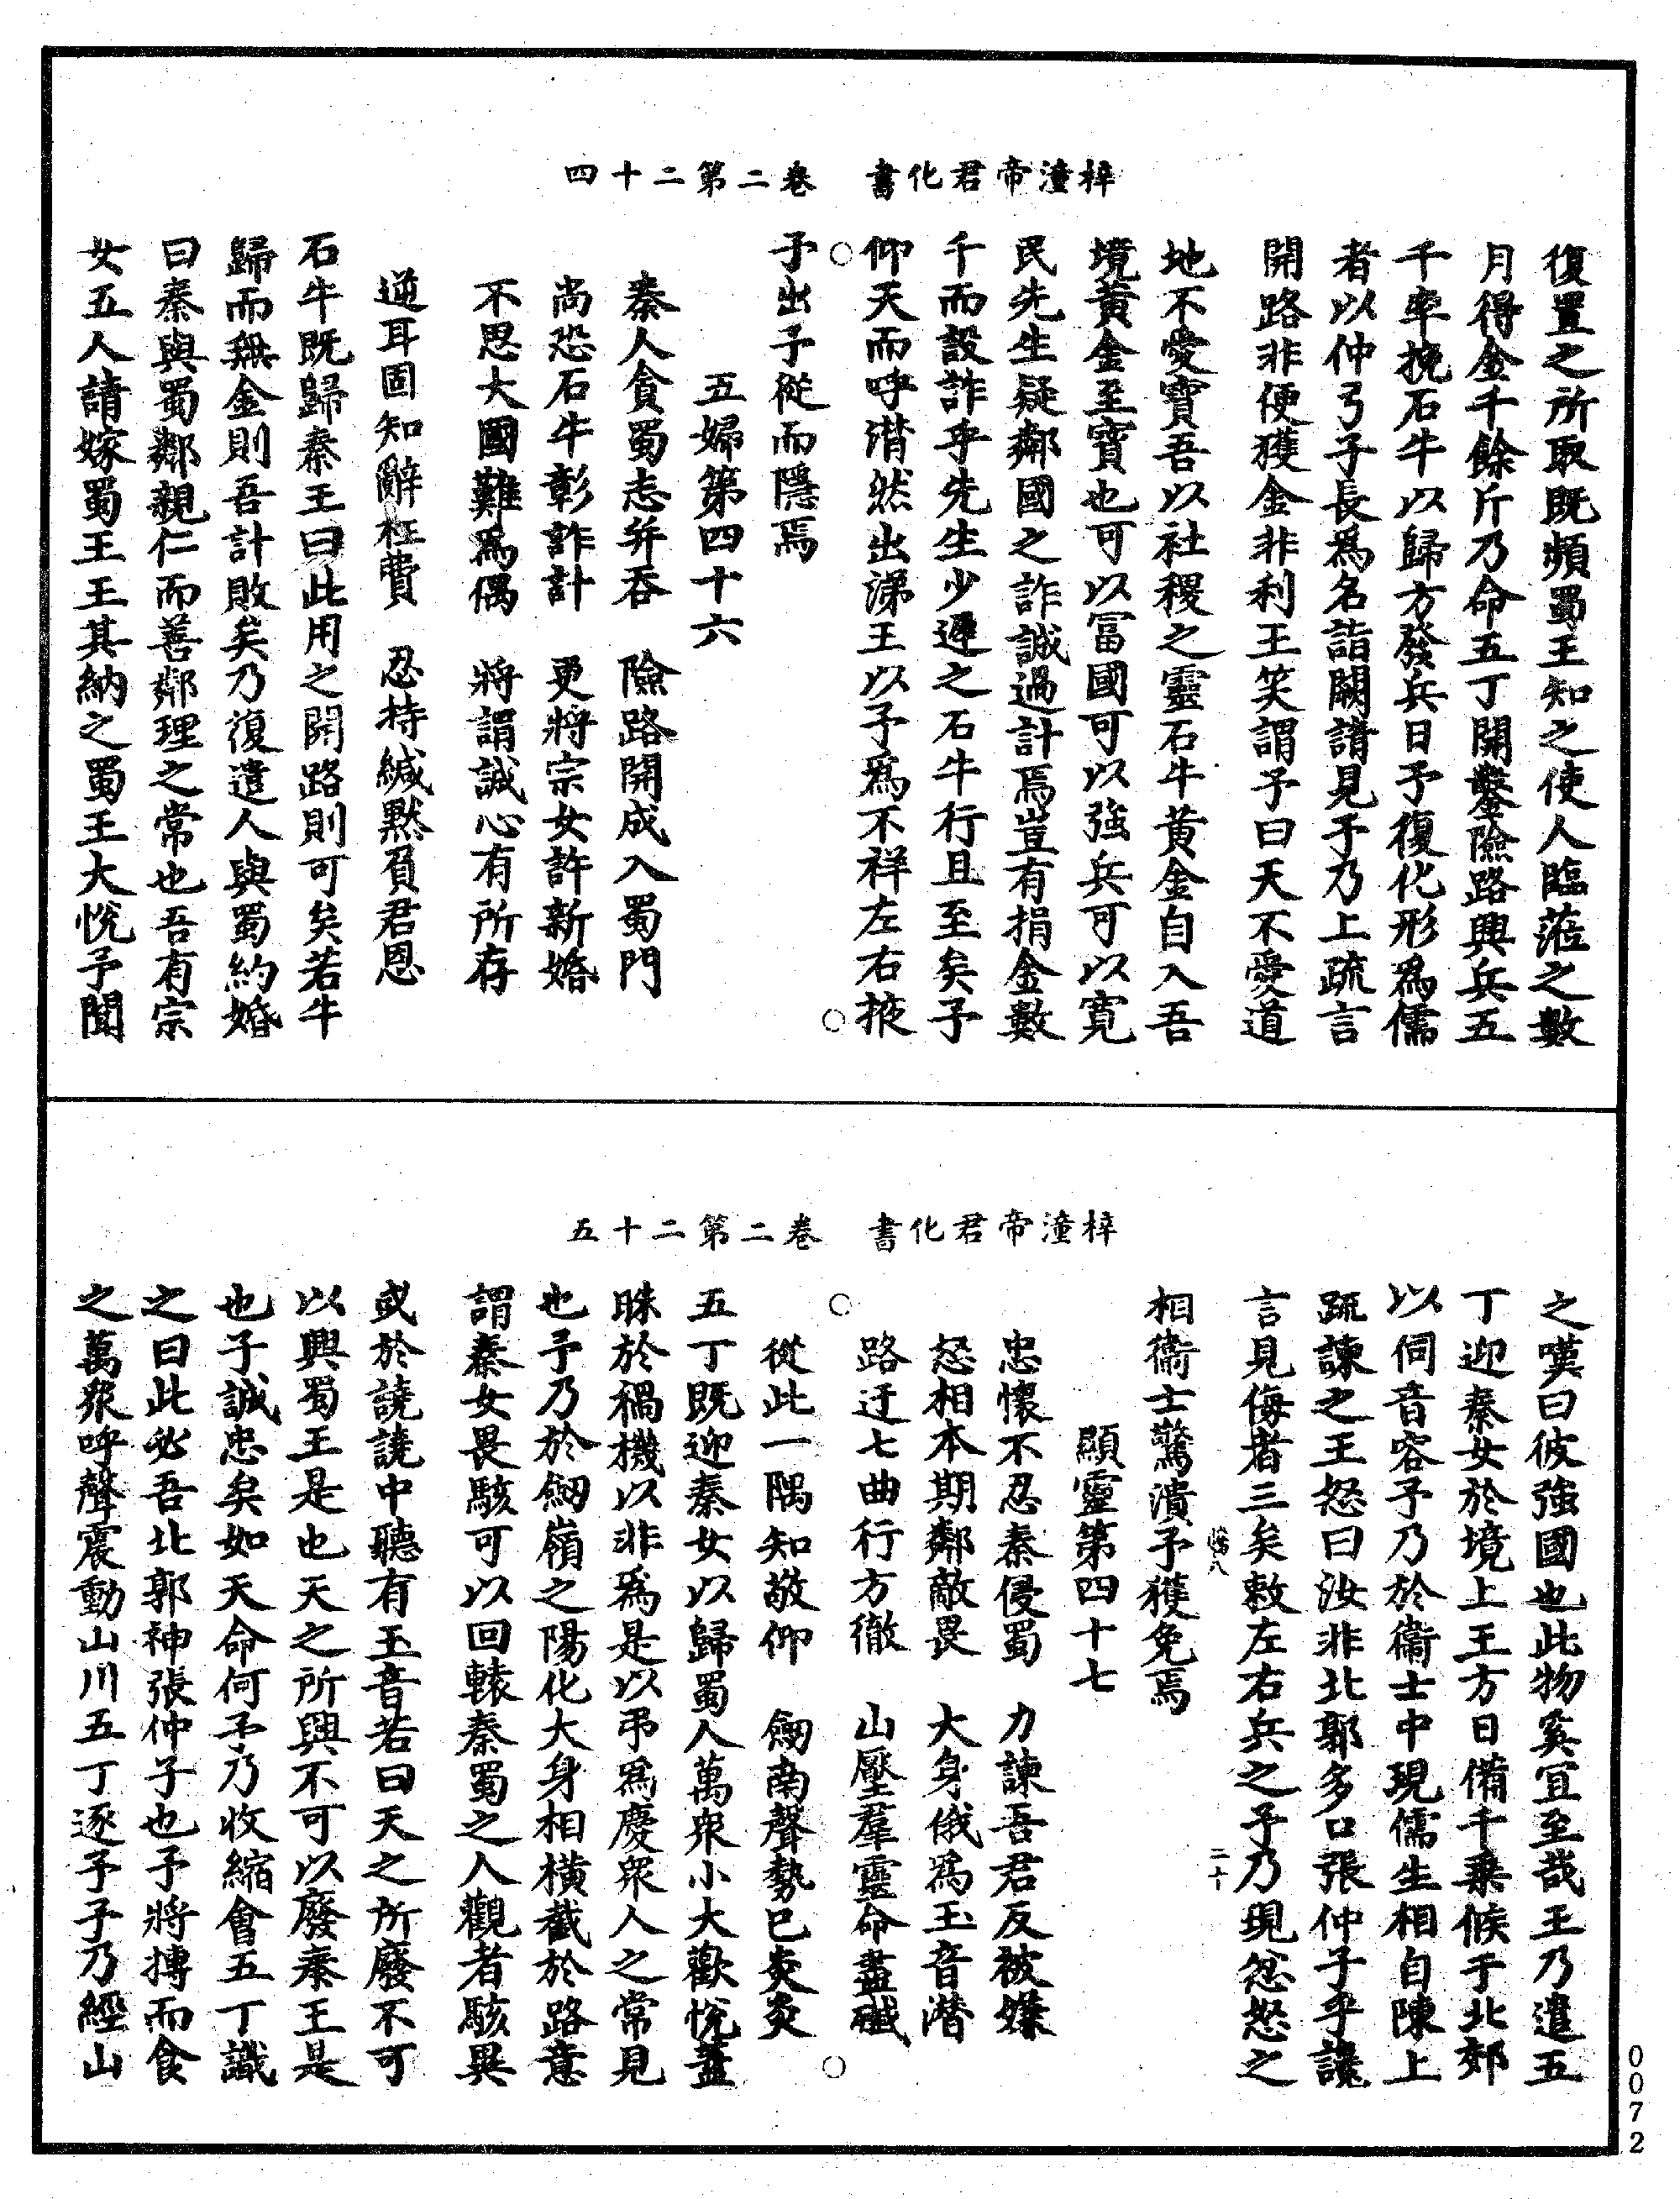 梓潼帝君化書　卷二第二十四
復置之所取既頻蜀王知之使人臨蒞之數
月得金千餘斤乃命五丁開鑿險路興兵五
千率挽石牛以歸方發兵日予復化形爲儒
者以仲弓子長爲名詣闕請見予乃上疏言
開路非便獲金非利王笑謂予曰天不愛道
地不愛寶吾以社稷之靈石牛黃金自入吾
境黃金至寶也可以富國可以強兵可以寬
民先生疑鄰國之詐誠過計焉豈有捐金數
千而設詐乎先生少遲之石牛行且至矣予
仰天而呼潸然出涕王以予爲不祥左右掖
予出予從而隱焉
五婦第四十六
秦人貪蜀志并吞　險路開成入蜀門
尚恐石牛彰詐計　更將宗女許新婚
不思大國難爲偶　將謂誠心有所存
逆耳固知辭枉費　忍持緘默負君恩
石牛既歸秦王曰此用之開路則可矣若牛
歸而無金則吾計敗矣乃復遣人與蜀約婚
曰秦與蜀鄰親仁而善鄰理之常也吾有宗
女五人請嫁蜀王王其納之蜀王大悅予聞
梓潼帝君化書　卷二第二十五
之嘆曰彼強國也此物奚宜至哉王乃遣五
丁迎秦女於境上王方日備千乘候于北郊
以伺音容予乃於衞士中現儒生相自陳上
疏諫之王怒曰汝非北郭多口張仲子乎讒
言見侮者三矣敕左右兵之予乃現忿怒之
相衞士驚潰予獲免焉
二十
顯靈第四十七
忠懷不忍秦侵蜀　力諫吾君反被嫌
怒相本期鄰敵畏　大身俄爲玉音潛
路迂七曲行方徹　山壓羣靈命盡殲
從此一隅知敬仰　劒南聲勢已炎炎
五丁既迎秦女以歸蜀人萬衆小大歡悅蓋
昧於禍機以非爲是以弔爲慶衆人之常見
也予乃於劒嶺之陽化大身相橫截於路意
謂秦女畏駭可以回轅秦蜀之人觀者駭異
或於譊譊中聽有玉音若曰天之所廢不可
以興蜀王是也天之所興不可以廢秦王是
也子誠忠矣如天命何予乃收縮會五丁識
之曰此必吾北郭神張仲子也予將摶而食
之萬衆呼聲震動山川五丁逐予予乃經山
0072